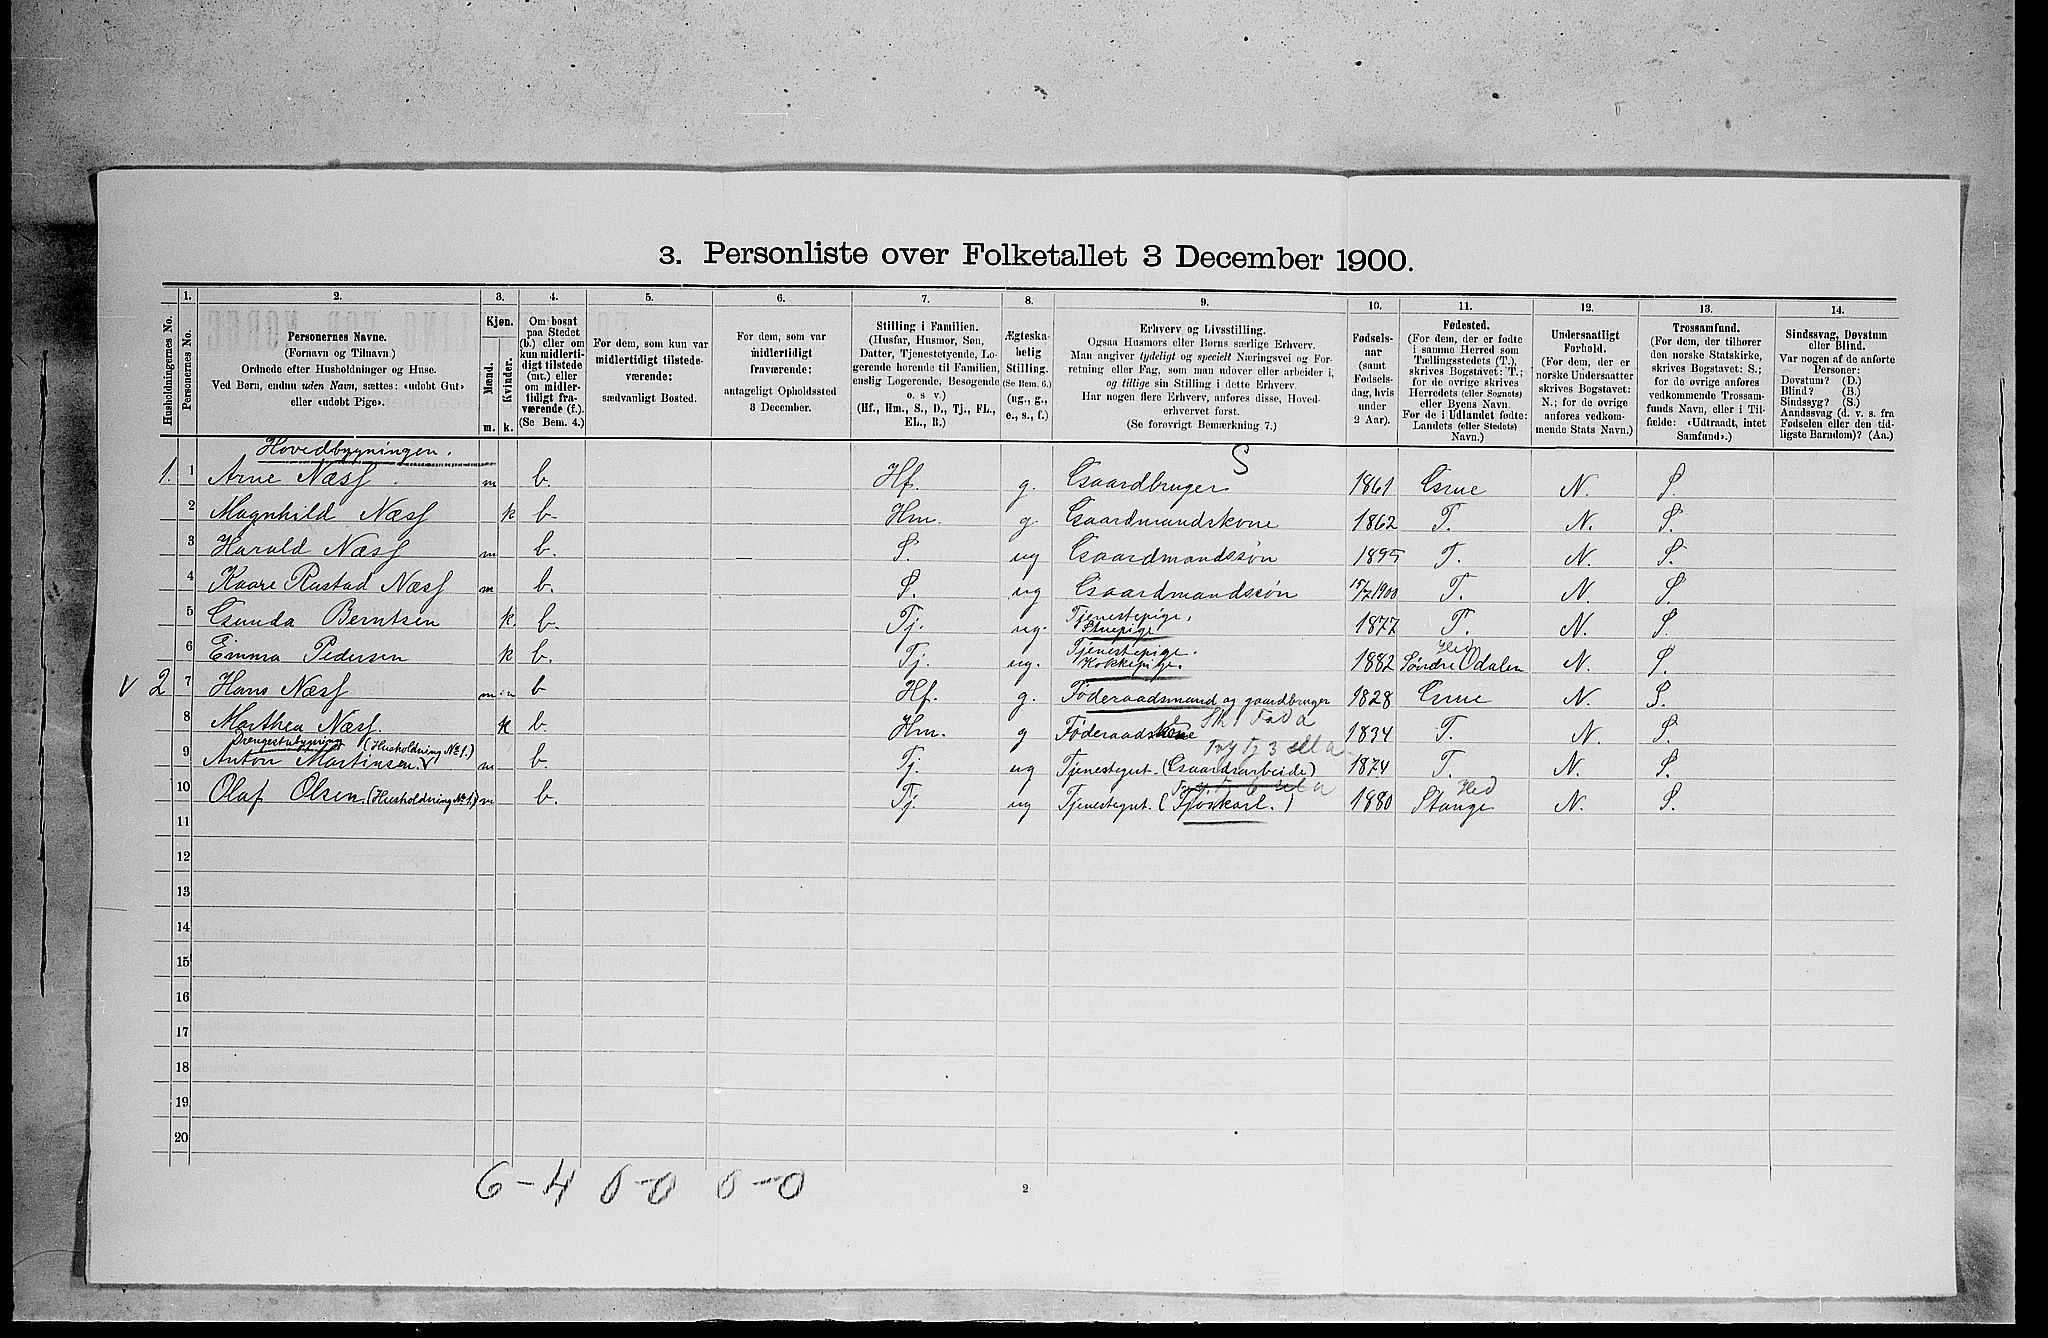 3. Personliste over Folketallet 3 December 1900.
1. 2. 3. 4. 5. 6. 7. 8. 9. 10. 11. 12. 13. 14.
Husholdningernes No.
Personernes No.
Personernes Navne.
(Fornavn og Tilnavn)
Ordnede efter Husholdninger og Huse.
Ved Børn, endnu uden Navn, sættes: «udøbt Gut»
eller «udøbt Pige».
Kjøn.
Mænd.
Kvinder.
m. k.
Om bosat
paa Stedet
(b.) eller om
kun midlerti-
digt tilstede
(mt.) eller
om midler-
tidigt fra-
værende (f.).
(Se Bem. 4.)
For dem, som kun var
midlertidigt tilstede-
værende:
sædvanligt Bosted.
For dem, som var
midlertidigt
fraværende:
antageligt Opholdssted
3 December.
Stilling i Familien.
(Husfar, Husmor, Søn,
Datter, Tjenestetyende, Lo-
gerende hørende til Familien,
enslig Logerende, Besøgende
o. s v.)
(Hf., Hm., S., D., Tj., FL.,
EL., B.)
Ægteska-
belig
Stilling.
(Se Bem. 6.)
(ug., g.,
e., s., f.)
Erhverv og Livsstilling.
Ogsaa Husmors eller Børns særlige Erhverv.
Man angiver tydeligt og specielt Næringsvei og For-
retning eller Fag, som man udøver eller arbeider i,
og tillige sin Stilling i dette Erhverv.
Har nogen flere Erhverv, anføres disse, Hoved-
erhvervet først.
(Se forøvrigt Bemærkning 7.)
Fødsels-
aar
(samt
Fødsels-
dag, hvis
under
2 Aar).
Fødested.
(For dem, der er fødte
i samme Herred som
Tællingsstedets (T.),
skrives Bogstavet: T.;
for de øvrige skrives
Herredets (eller Sognets)
eller Byens Navn.
For de i Udlandet fødte:
Landets (eller Stedets)
Navn.)
Undersaatligt
Forhold.
(For dem, der er
norske Undersaatter
skrives Bogstavet:
N.; for de øvrige
anføres vedkom-
mende Stats Navn.)
Trossamfund.
(For dem, der tilhører
den norske Statskirke,
skrives Bogstavet: S.;
for de øvrige anføres
vedkommende Trossam-
funds Navn, eller i Til-
fælde: «Udtraadt, intet
Samfund».)
Sindssvag, Døvstum
eller Blind.
Var nogen af de anførte
Personer:
Døvstum? (D.)
Blind? (B.)
Sindssyg? (S.)
Aandssvag (d. v. s. fra
Fødselen eller den tid-
ligste Barndom)? (Aa.)
Hovedbygningen. S
1. 1 Arne Næss m b. Hf. g. Gaardbruger 1861 Grue N. S.
2 Magnhild Næss k b. Hm. g. Gaardmandskone 1862 T. N. S.
3 Harald Næss m b. — S. ug Gaardmandssøn 1895 T. N. S.
4 Kaare Rustad Næss m b. S. ug Gaardmandssøn 15/7 1900 T. N. S.
5 Gunda Berntsen k. b. Tj. ug. Tjenestepige, Stuepige 1877 T. N. S.
6 Emma Pedersen k b. Tj. ug. Tjenestepige. Kokkepige. 1882 Søndre Odalen Hed N. S.
v 2 7 Hans Næss m b Hf. g. Føderaadsmand og gaardbruger 1828 Grue N. S.
8 Marthea Næss. k b. Hm. g Føderaadskone 1834 T. N. S.
Drengestubygning (Husholdning No 1.)
9 Anton Martinsen. m b. Tj. ug Tjenestegut. (Gaardsarbeide) 1874 T. N. S.
10 Olaf Olsen. (Husholdning No 1.) m b. Tj. ug Tjenestegut. (Fjøskarl.) 1880 Stange Hed N. S.
11
12
13
14
15
16
17
18
19
20
6-4 0-0 0-0
2